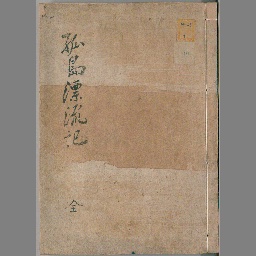 孤島漂流記
全